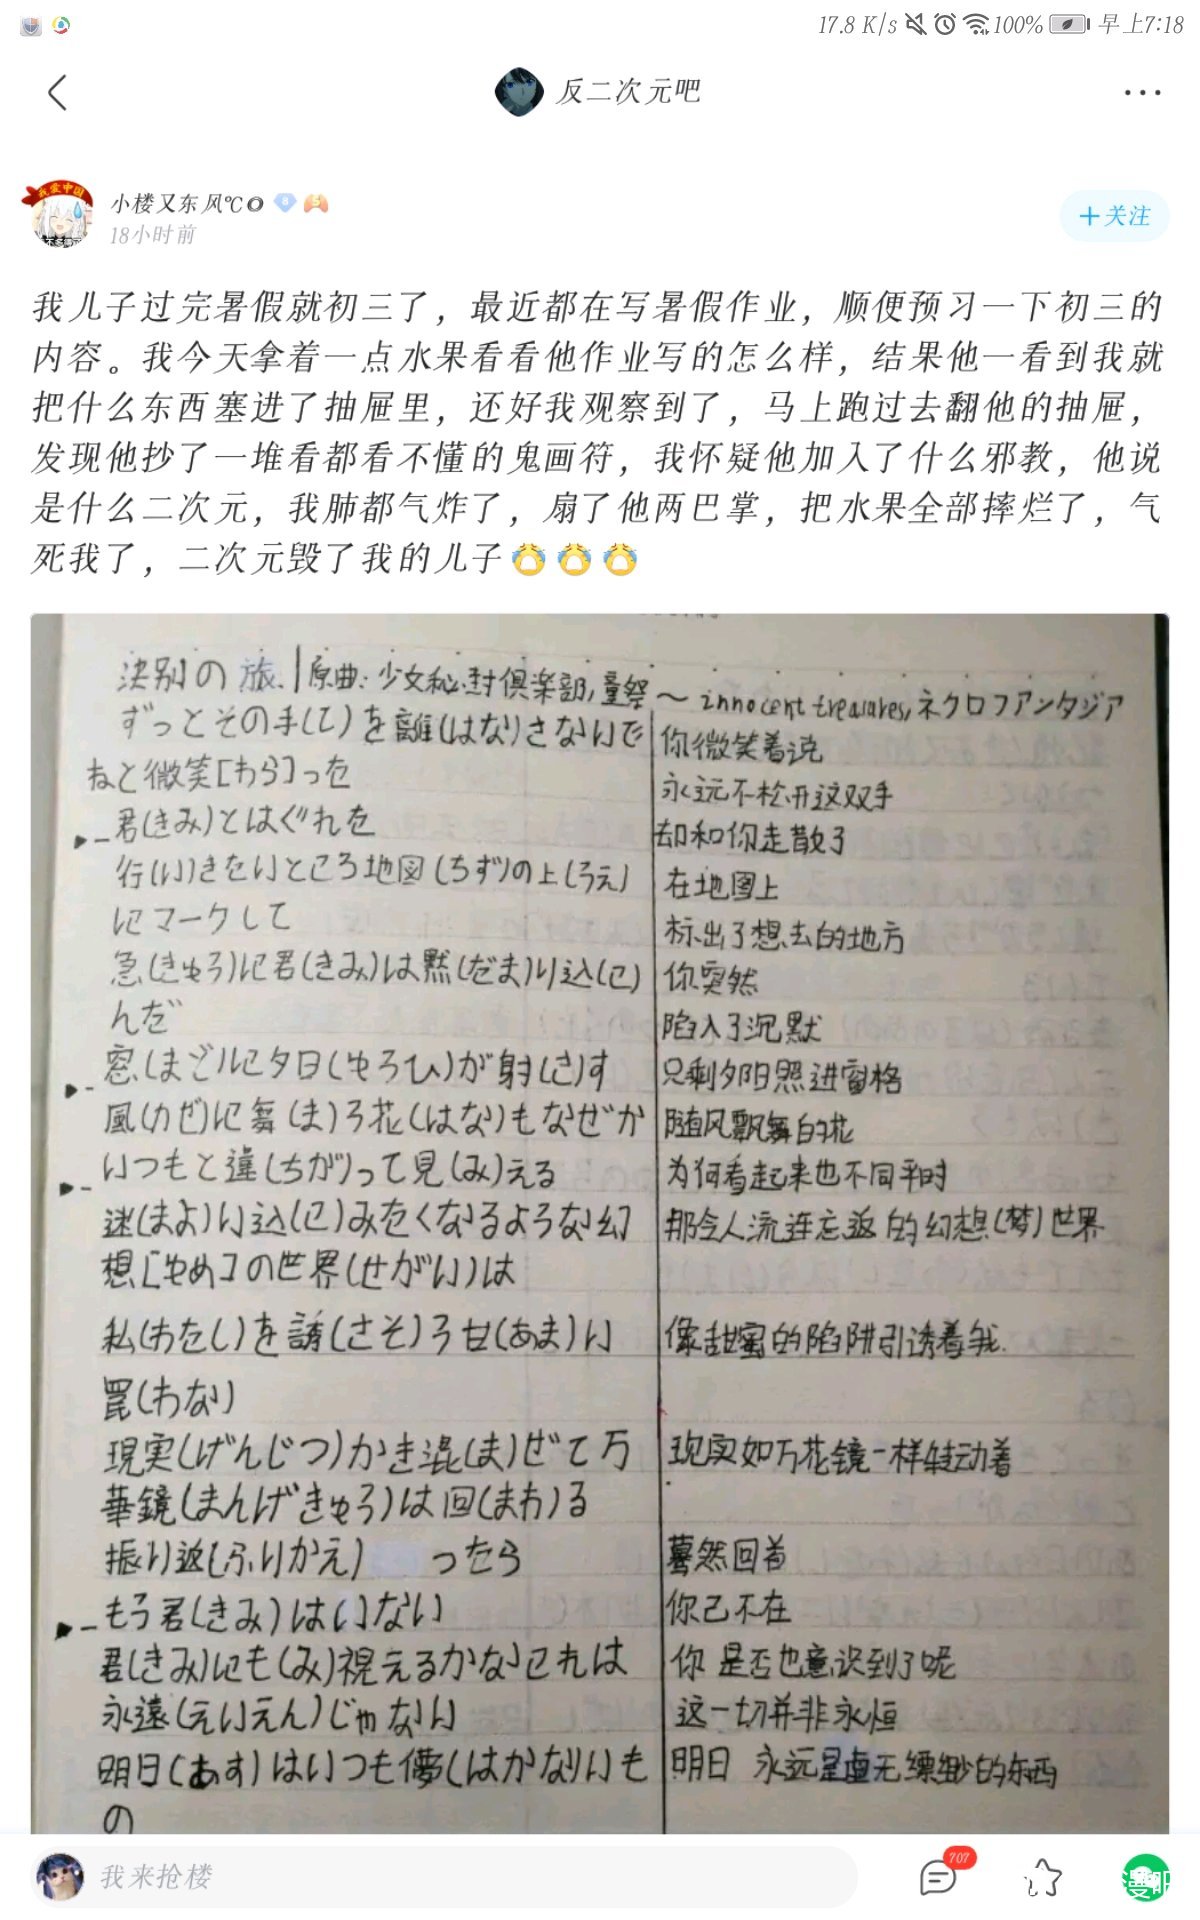 17.8 K/s 100% 早上7:18
反二次元吧
我爱中国
小楼又东风℃ 8 5
18小时前
+关注
我儿子过完暑假就初三了，最近都在写暑假作业，顺便预习一下初三的
内容。我今天拿着一点水果看看他作业写的怎么样，结果他一看到我就
把什么东西塞进了抽屉里，还好我观察到了，马上跑过去翻他的抽屉，
发现他抄了一堆看都看不懂的鬼画符，我怀疑他加入了什么邪教，他说
是什么二次元，我肺都气炸了，扇了他两巴掌，把水果全部摔烂了，气
死我了，二次元毁了我的儿子😭😭😭
決别の旅 | 原曲：少女秘封倶楽部，童祭 ～ innocent treasures，ネクロファンタジア
ずっとその手(て)を離(はな)さないで
你微笑着说
ねと微笑[わら]った
永远不松开这双手
君(きみ)とはぐれた
却和你走散了
行(い)きたいところ地図(ちず)の上(うえ)
在地图上
にマークして
标出了想去的地方
急(きゅう)に君(きみ)は黙(だま)り込(こ)
你突然
んだ
陷入了沉默
窓(まど)に夕日(ゆうひ)が射(さ)す
只剩夕阳照进窗格
風(かぜ)に舞(ま)う花(はな)もなぜか
随风飘舞的花
いつもと違(ちが)って見(み)える
为何看起来也不同平时
迷(まよ)い込(こ)みたくなるような幻
那令人流连忘返的幻想(梦)世界
想[ゆめ]の世界(せがい)は
私(わたし)を誘(さそ)う甘(あま)い
像甜蜜的陷阱引诱着我.
罠(わな)
現実(げんじつ)かき混(ま)ぜて万
现实如万花镜一样转动着
華鏡(まんげきゅう)は回(まわ)る
振り返(ふりかえ) ったら
蓦然回首
もう君(きみ)はいない
你已不在
君(きみ)にも(み)視えるかなこれは
你是否也意识到了呢
永遠(えいえん)じゃない
这一切并非永恒
明日(あす)はいつも儚(はかな)いも
明日 永远是虚无缥缈的东西
の
我来抢楼
707
漫吧